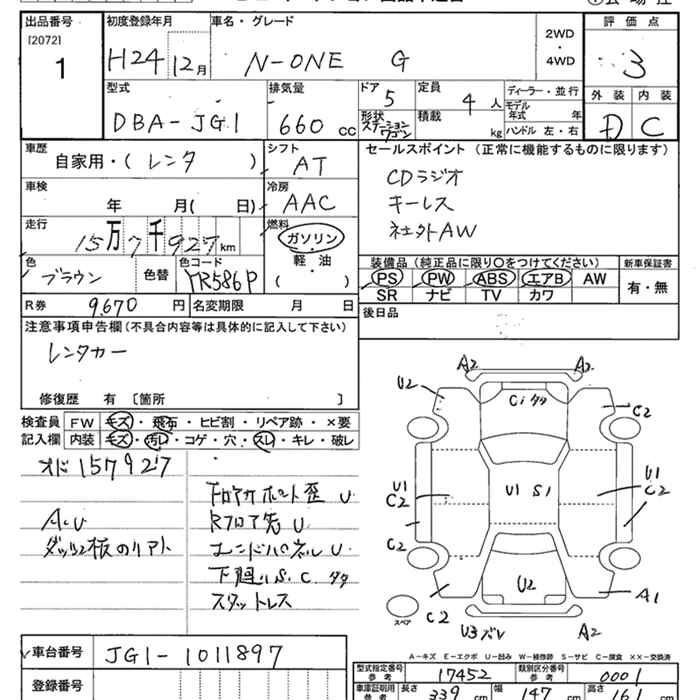 出品番号 初度登録年月 車名・グレード 評価点
[2072]
1 H24 12月 N-ONE G 2WD・4WD 3
型式 排気量 ドア 5 定員 4人 ディーラー・並行 外装 内装
モデル年式 年
DBA-JG1 660cc 形状 ステーションワゴン 積載 kg ハンドル 左・右 D C
車歴 シフト セールスポイント (正常に機能するものに限ります)
自家用・(レンタ) AT
CDラジオ
車検 冷房
年 月(日) AAC キーレス
走行 燃料 社外AW
15万7千927km ガソリン・軽油
( )
装備品(純正品に限り○をつけてください) 新車保証書
色 色替 色コード PS PW ABS エアB AW 有・無
ブラウン YR586P SR ナビ TV カワ
R券 9,670円 名変期限 月 日 後日品
注意事項申告欄(不具合内容等は具体的に記入して下さい)
レンタカー
修復歴 有 〔箇所 〕
検査員 FW キズ・飛石・ヒビ割・リペア跡・×要
記入欄 内装 キズ・汚レ・コゲ・穴・スレ・キレ・破レ
オド157927
A.C.U
下廻りS.C.タタ
スタットレス
A2 A2
U2 Ciタタ C2
U1 C2 U1 S1 U1 C2
C2
U2
C2 A1
スペア
U3ズレ A2
A-キズ E-エクボ U-凹み W-補修跡 S-サビ C-腐食 XX-交換済
車台番号 JG1-1011897
型式指定番号 参考 17452 類別区分番号 参考 0001
登録番号
車庫証明用 参考 長さ 339cm 幅 147cm 高さ 161cm